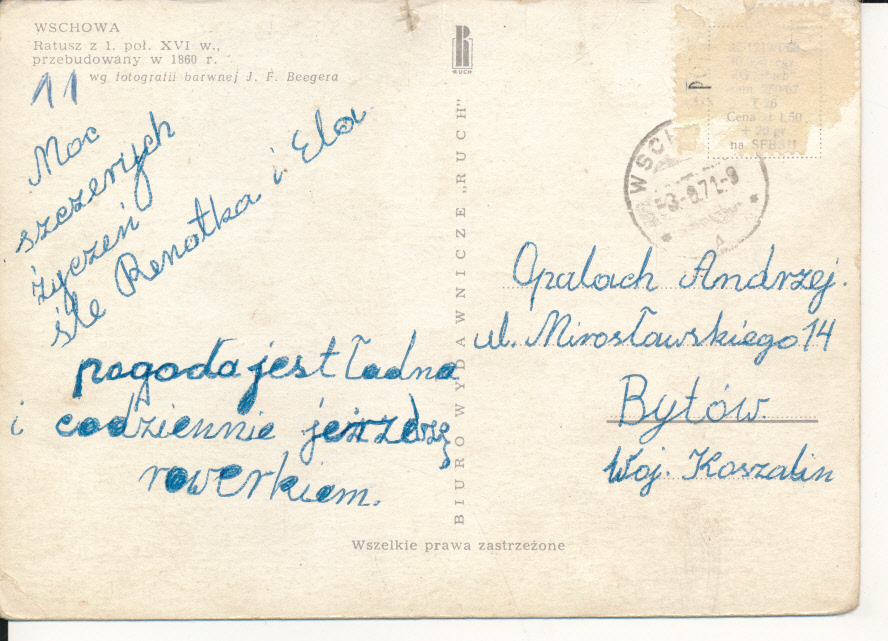 WSCHOWA
Ratusz z 1. poł. XVI w.,
przebudowany w 1860 r.
wg fotografii barwnej J. F. Beegera
11
Moc
szczerych
życzeń
śle Renatka i Ela
pogoda jest ładna
i codziennie jeżdżę
rowerkiem.
RUCH
BIURO WYDAWNICZE „RUCH"
Cena zł 1,50
+ 20 gr
na SFBS
WSCH
71-9
Opalach Andrzej.
ul. Mirosławskiego 14
Bytów.
Woj. Koszalin
Wszelkie prawa zastrzeżone